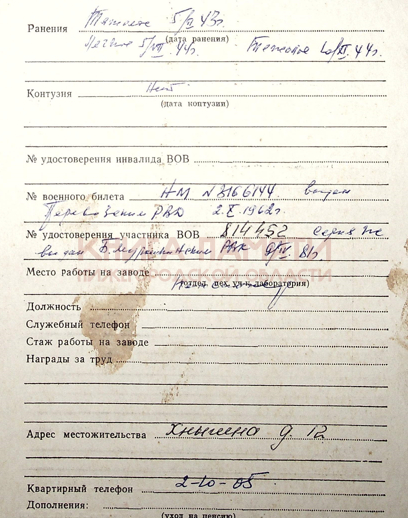 Ранения Тяжелое 5/IV 43г.
(дата ранения)
Легкое 5/VII 44г. Тяжелое 10/XI 44г.
Контузия Нет
(дата контузии)
№ удостоверения инвалида ВОВ
№ военного билета НМ №8166144 выдан
РВК 2.X.1962г.
№ удостоверения участника ВОВ 814452 Серия
выдан РВК 9/IV 81г
КНИГА ПАМЯТИ
НИЖЕГОРОДСКОЙ ОБЛАСТИ
Место работы на заводе
(отдел, цех, уч-к, лаборатория)
Должность
Служебный телефон
Стаж работы на заводе
Награды за труд
Адрес местожительства д. 12
Квартирный телефон 2-10-05
Дополнения:
(уход на пенсию)